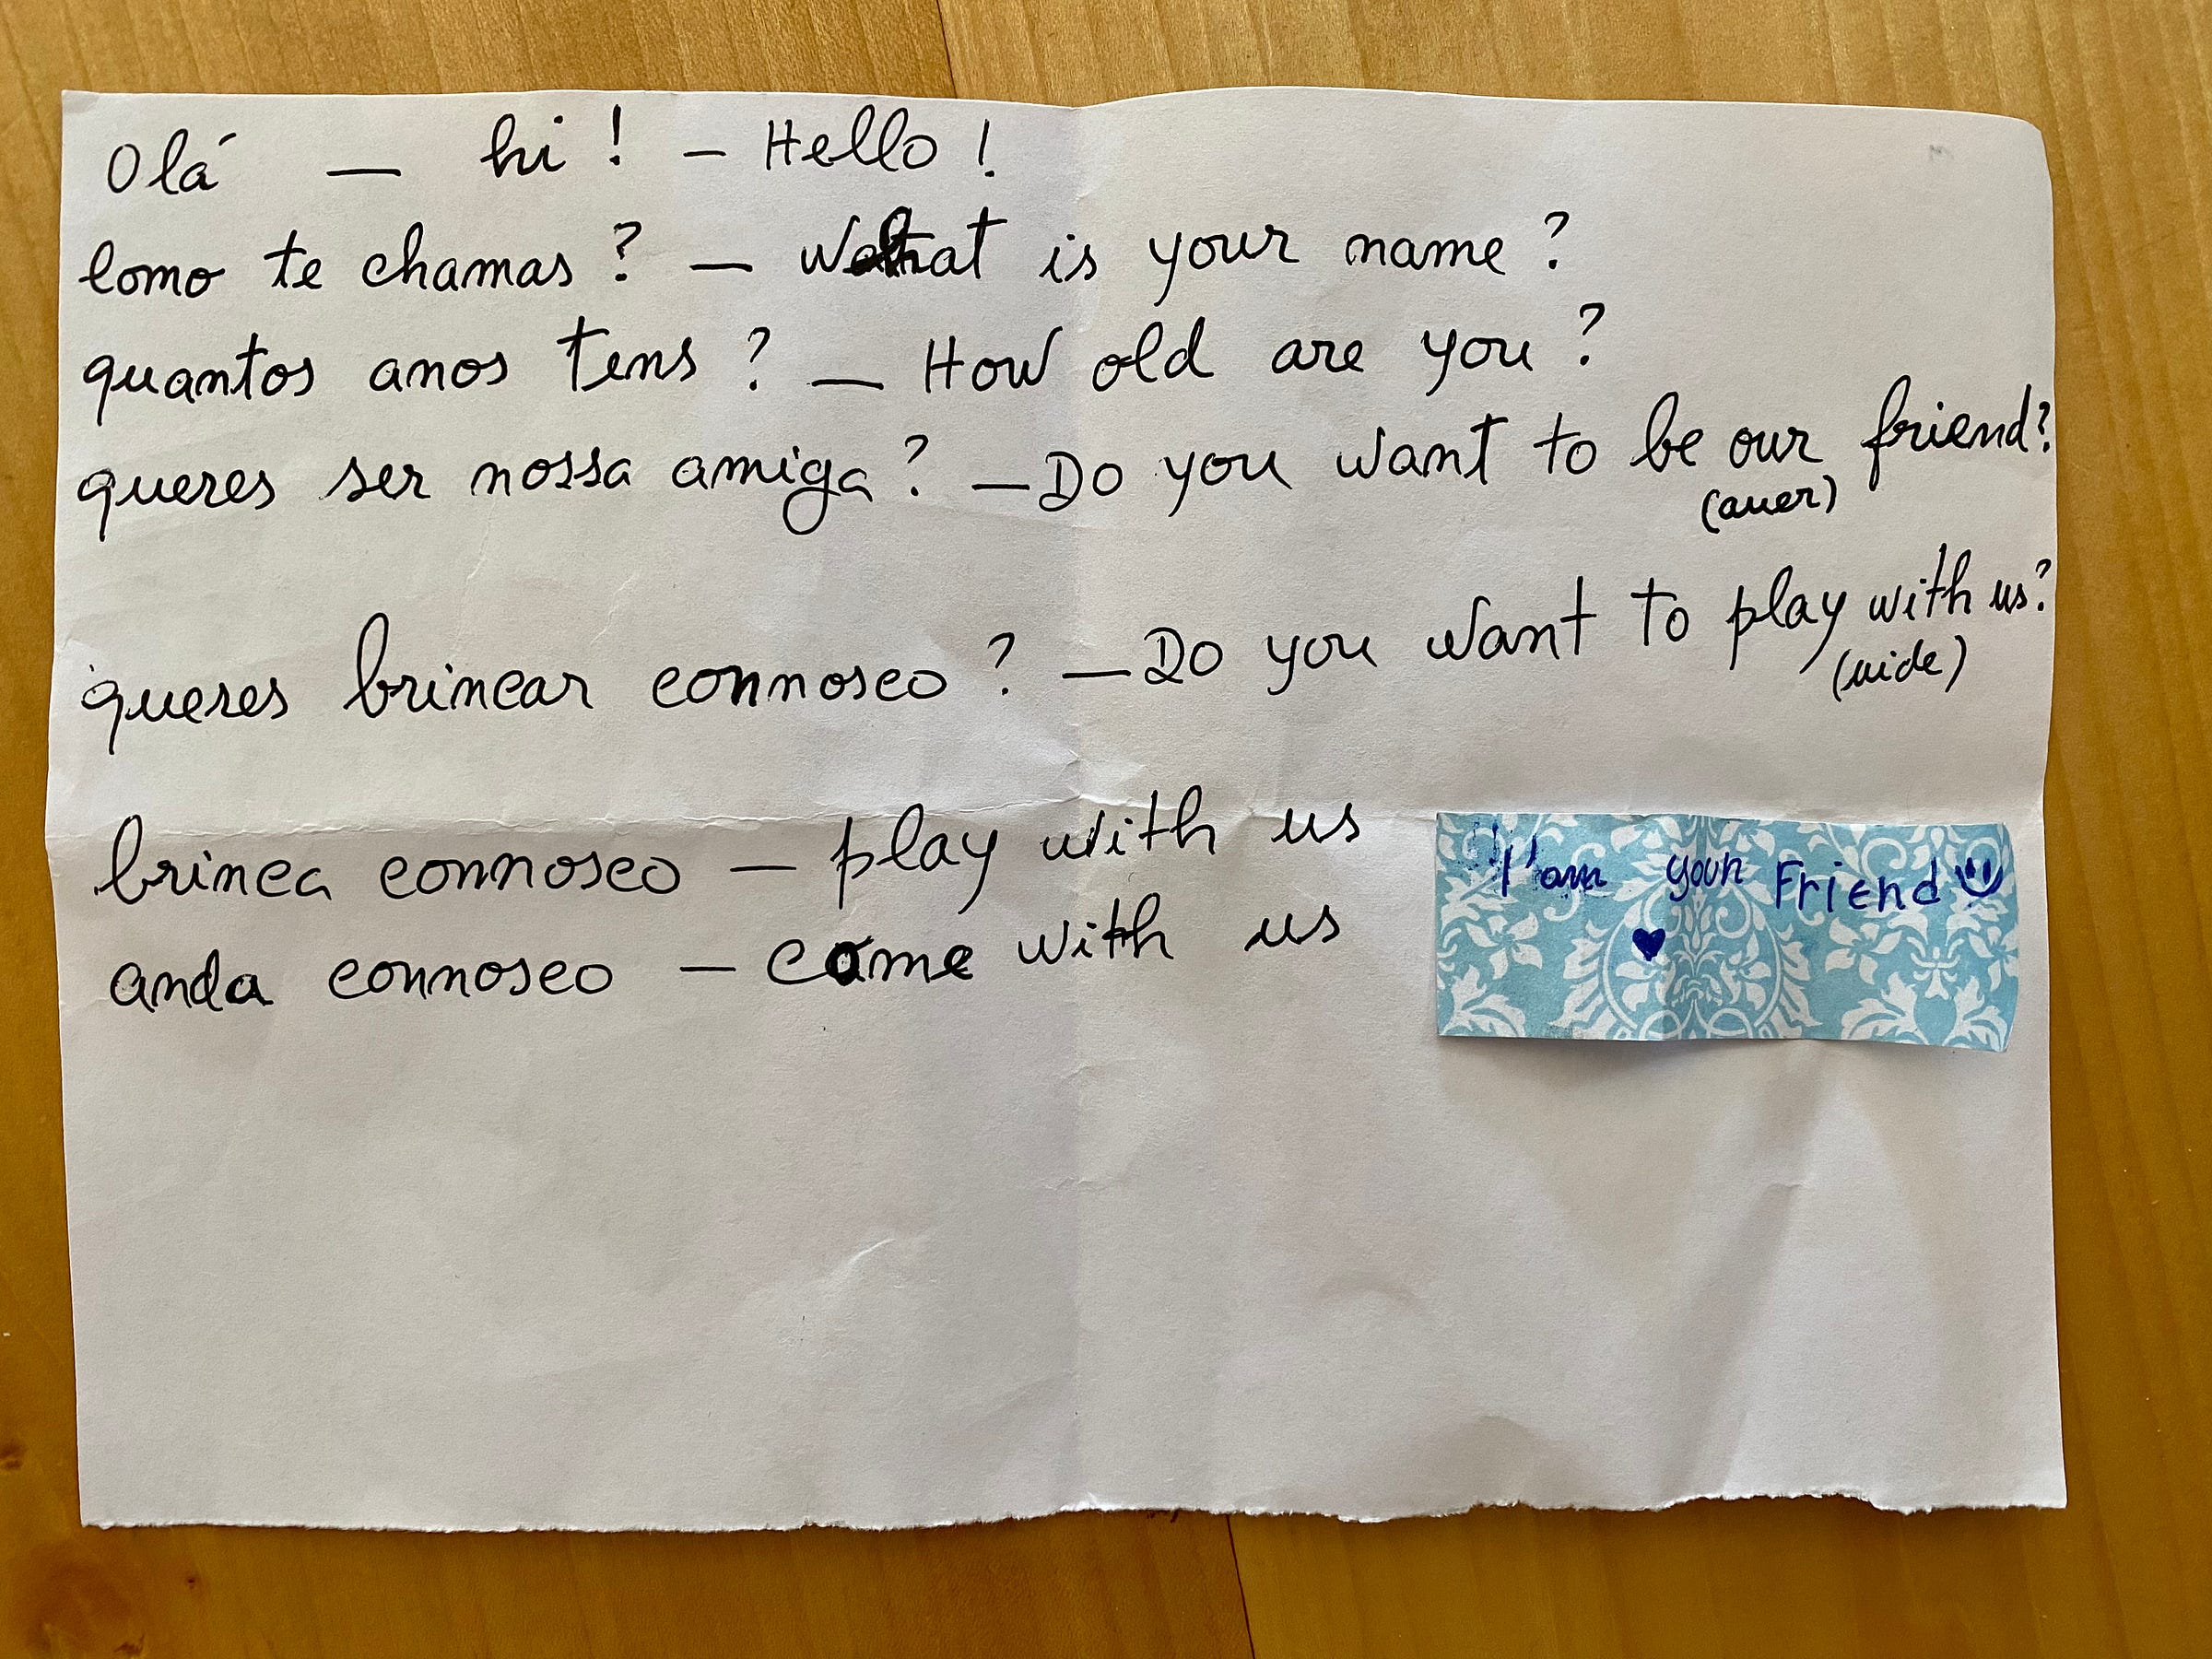 Olá — hi! – Hello!
Como te chamas? — What is your name?
quantos anos tens? — How old are you?
queres ser nossa amiga? — Do you want to be our friend?
(auer)
queres brincar connosco? — Do you want to play with us?
(uide)
brinca connosco — play with us
anda connosco — come with us
I'am your Friend